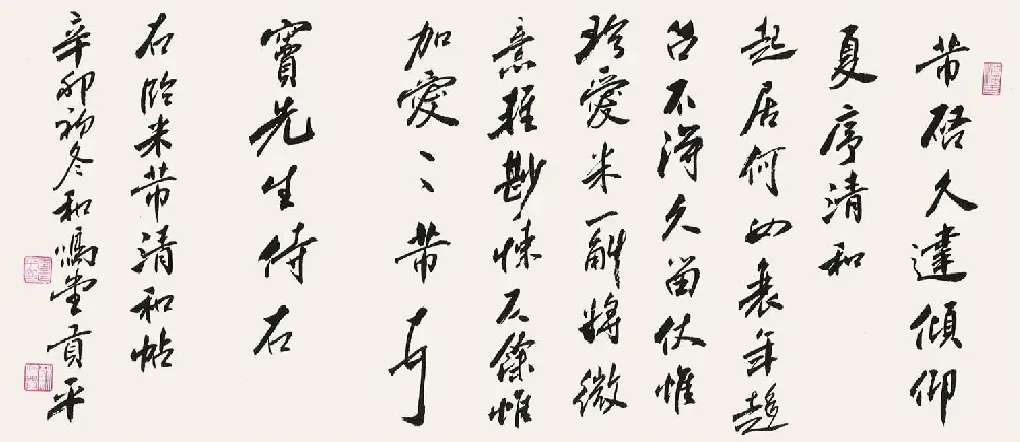 芾启久违倾仰
夏序清和
起居何如衰年趋
召不得久留伏惟
珍爱米一斛将微
意轻尠悚仄余惟
加爱〻芾顿首
窦先生侍右
右临米芾清和帖
辛卯初冬和鸣堂贡平